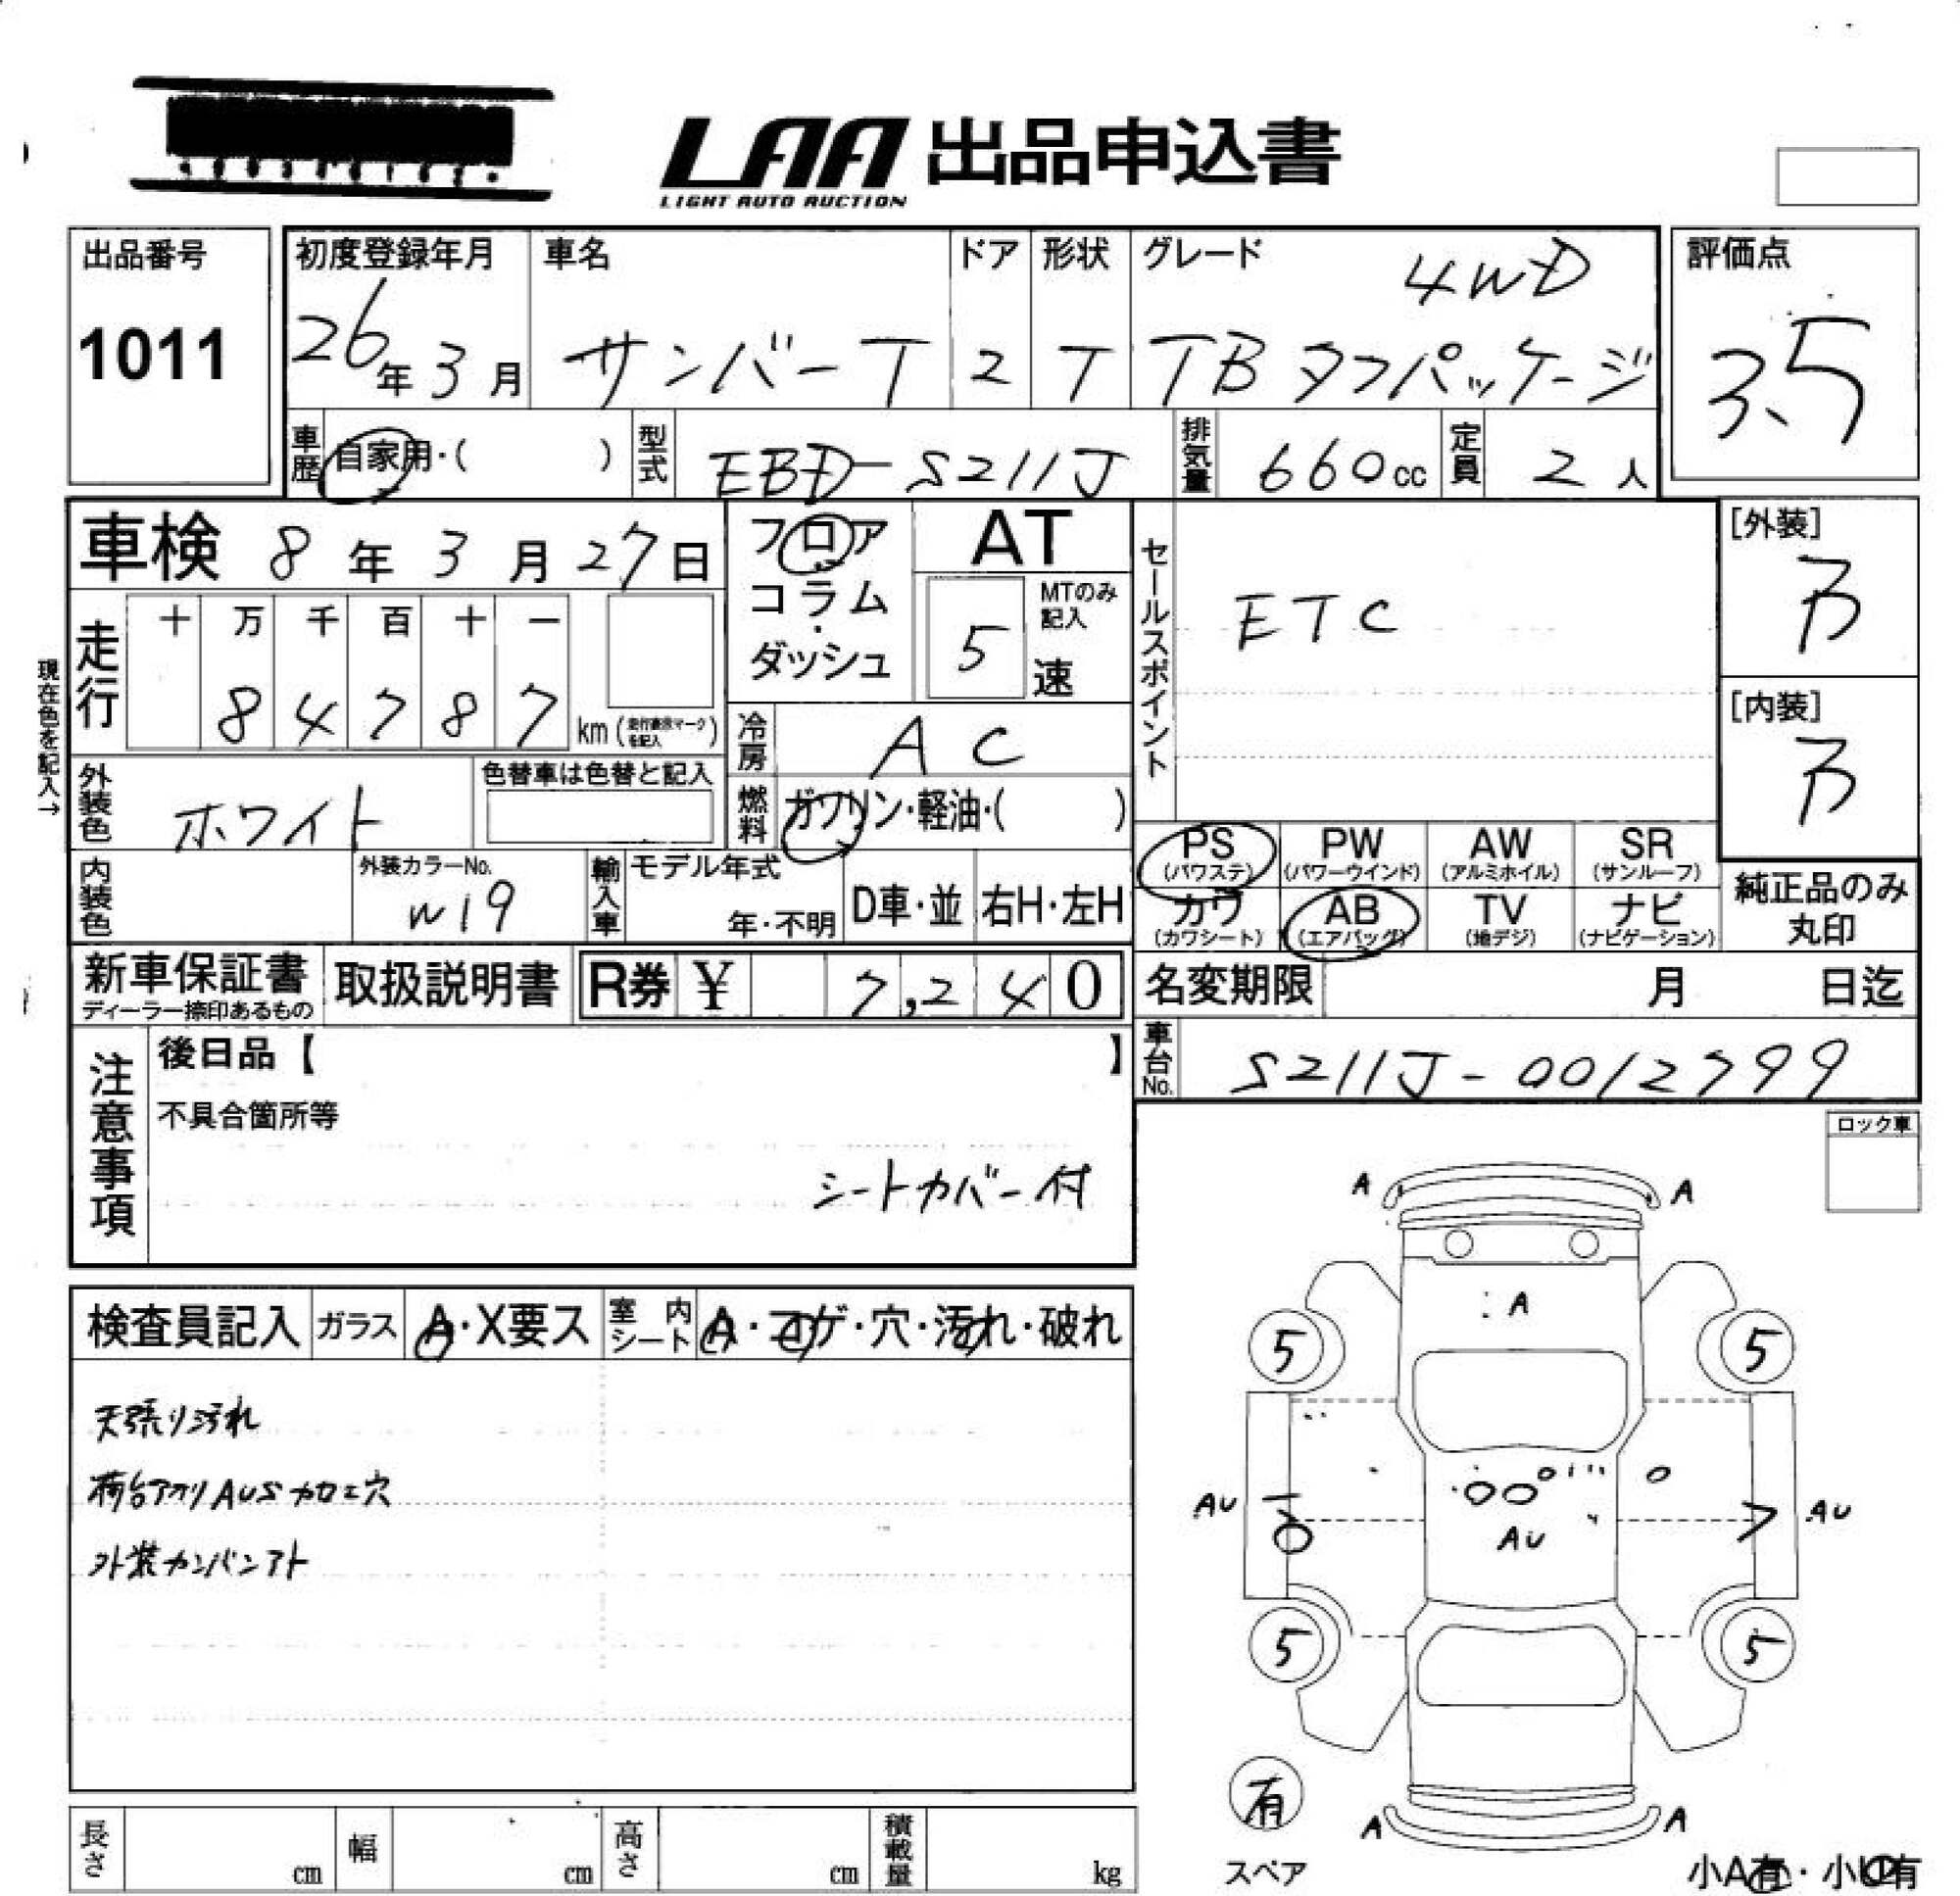 LAA 出品申込書
LIGHT AUTO AUCTION
出品番号
1011
初度登録年月
26年3月
車名
サンバーT
ドア
2
形状
T
グレード
4WD
TB タフパッケージ
評価点
3.5
車歴 自家用・( )
型式 EBD-S211J
排気量 660cc
定員 2人
車検 8年3月27日
フロア
コラム
ダッシュ
AT
MTのみ記入
5速
セールスポイント
ETC
[外装]
B
[内装]
B
現在色を記入→
走行
十 万 千 百 十 一
8 4 7 8 7 km (走行表示マークを記入)
冷房 AC
外装色 ホワイト
色替車は色替と記入
燃料 ガソリン・軽油・( )
内装色
外装カラーNo.
W19
輸入車
モデル年式
年・不明
D車・並
右H・左H
PS (パワステ)
PW (パワーウインド)
AW (アルミホイル)
SR (サンルーフ)
カワ (カワシート)
AB (エアバッグ)
TV (地デジ)
ナビ (ナビゲーション)
純正品のみ
丸印
新車保証書
ディーラー捺印あるもの
取扱説明書
R券 ¥ 7,240
名変期限 月 日迄
車台No. S211J-0012799
注意事項
後日品【 】
不具合箇所等
シートカバー付
ロック車
検査員記入 ガラス A・X要ス 室内シート A・コゲ・穴・汚れ・破れ
天張り汚れ
荷台アオリAUS加工穴
外装カンバンアト
A A
A
5 5
AU AU
AU
5 5
有
スペア
A A
小A有・小U有
長さ cm
幅 cm
高さ cm
積載量 kg